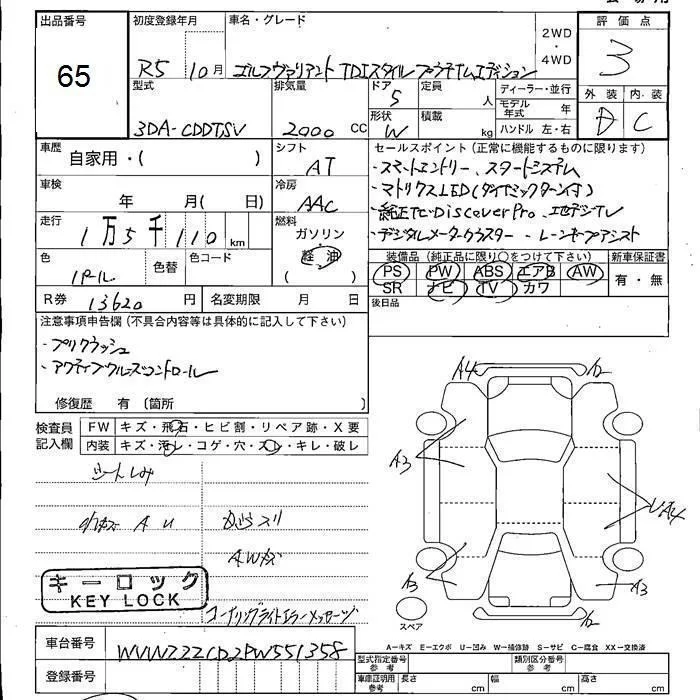 出品番号 65
初度登録年月 R5 10月
車名・グレード ゴルフヴァリアント TDIスタイル プラチナムエディション
2WD・4WD
評価点 3
外装 D 内装 C
型式 3DA-CDDTSV
排気量 2000 CC
ドア 5
形状 W
定員 人
積載 kg
ディーラー・並行
モデル年式 年
ハンドル 左・右
車歴 自家用・( )
シフト AT
車検 年 月( 日)
冷房 AAC
走行 1万5千110 km
燃料 ガソリン 軽油 ( )
色 パール 色替 色コード
R券 13620 円 名変期限 月 日
セールスポイント(正常に機能するものに限ります)
・スマートエントリー、スタートシステム
・マトリクスLED(ダイナミックターン付)
・純正ナビDiscoverPro、エセデジTV
・デジタルメータークラスター ・レーンキープアシスト
装備品(純正品に限り○をつけて下さい) 新車保証書
PS PW ABS エアB AW 有・無
SR ナビ TV カワ
後日品
注意事項申告欄(不具合内容等は具体的に記入して下さい)
・プリクラッシュ
・アクティブクルーズコントロール
修復歴 有〔箇所 〕
検査員記入欄 FW キズ・飛石・ヒビ割・リペア跡・X要
内装 キズ・汚レ・コゲ・穴・スレ・キレ・破レ
シートしみ
A U
スリ
AWキズ
キーロック
KEY LOCK
コーナリングライトエラーメッセージ
A4
A3
A3
A3
UA4
スペア
A-キズ E-エクボ U-凹み W-補修跡 S-サビ C-腐食 XX-交換済
車台番号 WVWZZZCDZPW551358
登録番号
型式指定番号 参考 類別区分番号 参考
車庫証明用 参考 長さ cm 幅 cm 高さ cm